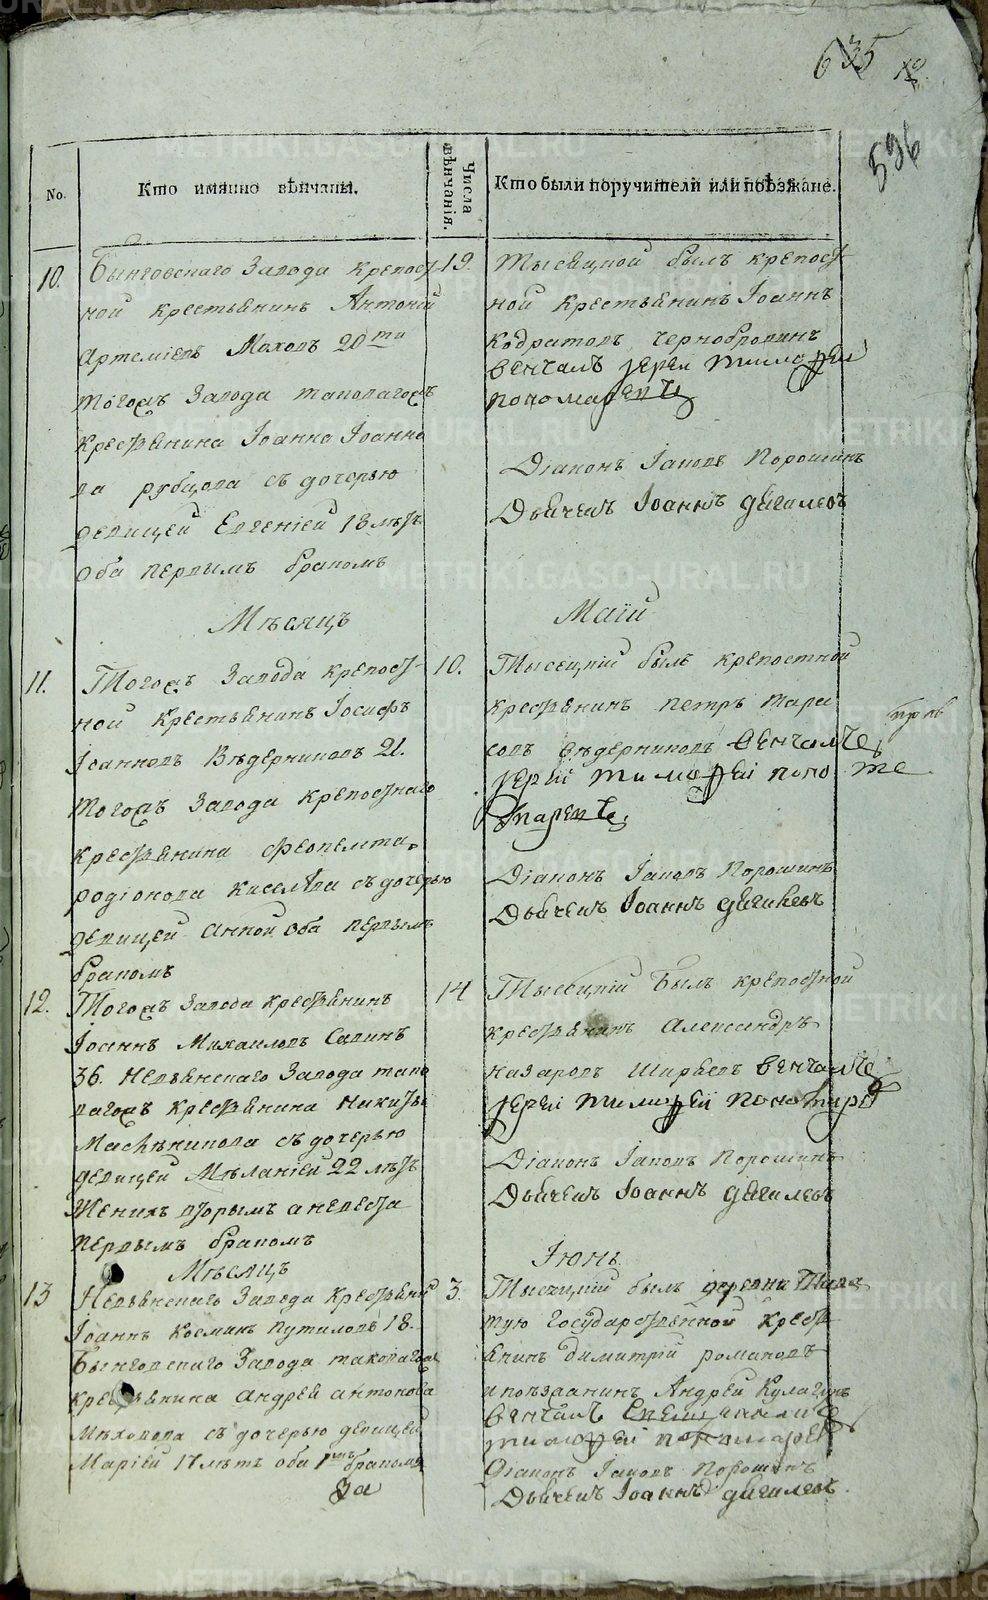 635
596
No.
Кто имянно вѣнчаны.
Числа вѣнчанія.
Кто были поручители или поѣзжане.
10.
Бынговскаго Завода крепост
ной крестьянинъ Антоній
Артеміевъ Моховъ 20ти
Тогожъ Завода таковагожъ
крестьянина Іоанна Іоанно
ва рубцова съ дочерью
девицей Евгеніей 18 лѣтъ
оба первымъ бракомъ
19.
Тысяцкой былъ крепост
ной крестьянинъ Іоаннъ
Кодратовъ Чернобровинъ
венчалъ іерей тимофей
пономаревъ
Діаконъ Іаковъ Порошинъ
Дьячекъ Іоаннъ дягилевъ
Мѣсяцъ
Маій
11.
Тогожъ Завода крепост
ной крестьянинъ Іосифъ
Іоанновъ Вѣдерниковъ 21.
Тогожъ Завода крепостнаго
крестьянина феопемта
родіонова киселева съ дочерью
девицей анной оба первымъ
бракомъ
10.
Тысецкій былъ крепостной
крестьянинъ петръ тара
совъ вѣдерниковъ венчалъ
іерей тимофей поно
маревъ
Діаконъ Іаковъ Порошинъ
Дьячекъ Іоаннъ дягилевъ
12.
Тогожъ Завода крестьянинъ
Іоаннъ Михаиловъ Савинъ
36. Невьянскаго Завода тако
вагожъ крестьянина Никиты
Масленикова съ дочерью
девицей Мѣланіей 22 лѣтъ
Женихъ вторымъ а невеста
первымъ бракомъ
14
Тысецкій былъ крепостной
крестьянинъ Александръ
назаровъ Ширяевъ венчалъ
іерей тимофей пономаре
Діаконъ Іаковъ Порошинъ
Дьячекъ Іоаннъ дягилевъ
Мѣсяцъ
Іюнь
13
Невьянскаго Завода крестьянинъ
Іоаннъ Косминъ Путиловъ 18.
Бынговскаго Завода таковагожъ
крестьянина андрея антонова
Мѣховова съ дочерью девицей
Маріей 17 лѣтъ оба 1мъ бракомъ
За
3.
Тысецкій былъ деревни
тую государственной крестья
янинъ димитрій романовъ
и поѣзжанинъ Андрей Кулагинъ
венчалъ
тимофей пономарев
Діаконъ Іаковъ Порошинъ
Дьячекъ Іоаннъ дягилевъ.
METRIKI.GASO-URAL.RU